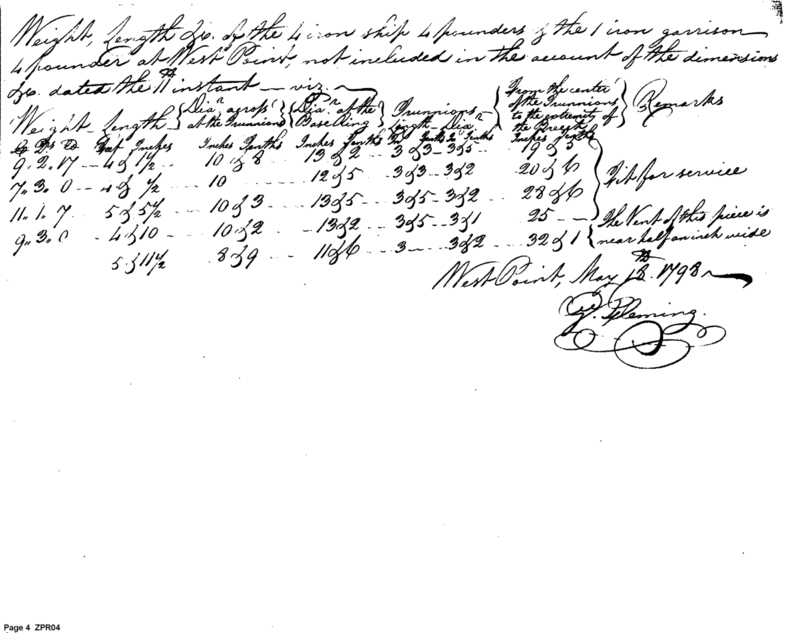 Weight, Length &c. of the 4 iron ship 4 pounders & the 1 iron garrison
4 pounder at West Point, not included in the account of the dimensions
&c. dated the 11th instant — viz.
Weight Length Diar. across at the Trunnions Diar. of the Basering Trunnions length Diar. From the center of the Trunnions to the extremity of the Breech Remarks
Inches Inches Tenths Inches Tenths Inches Tenths
9. 2. 17 -- 4 & 1 1/2 ... 10 & 8 13 & 2 -- 3 & 3 -- 3 & 5 .. 19 & 5
7. 3. 0 -- 4 & 1/2 ... 10 ---- 12 & 5 ... 3 & 3 -- 3 & 2 20 & 6 Fit for service
11. 1. 7 5 & 5 1/2 .. 10 & 3 13 & 5 ... 3 & 5 -- 3 & 2 ... 28 & 6
9. 3. 0 -- 4 & 10 -- .. 10 & 2 -- 13 & 2 ... 3 & 5 -- 3 & 1 25 -- The Vent of this piece is
5 & 11 1/2 8 & 9 ... 11 & 6 -- 3 -- 3 & 2 ... 32 & 1 near half an inch wide
West Point, May th 1798
G. Fleming.
Page 4 ZPR04